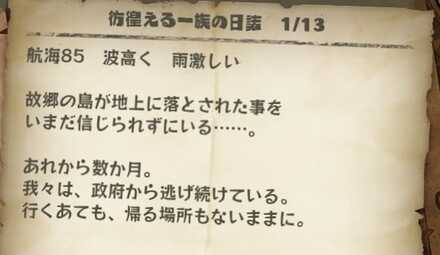 彷徨える一族の日誌　1/13
航海85　波高く　雨激しい
故郷の島が地上に落とされた事を
いまだ信じられずにいる……。
あれから数か月。
我々は、政府から逃げ続けている。
行くあても、帰る場所もないままに。